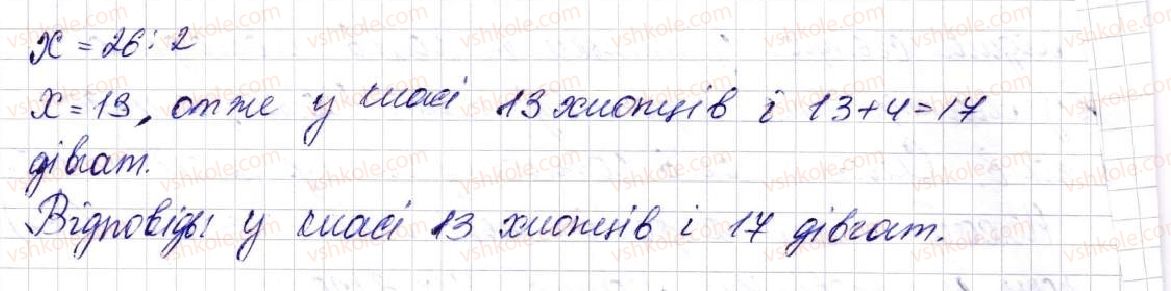 x = 26 : 2
x = 13, отже у класі 13 хлопців і 13+4=17
дівчат.
Відповідь: у класі 13 хлопців і 17 дівчат.